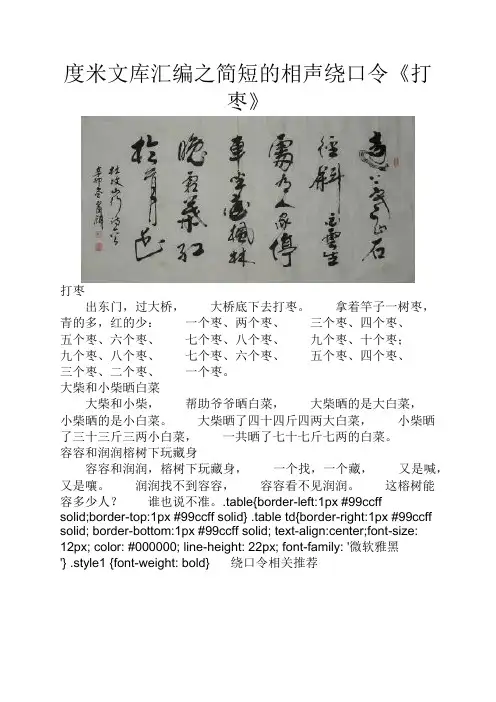 度米文库汇编之简短的相声绕口令《打
枣》
遠上寒山石
徑斜白雲生
處有人家停
車坐愛楓林
晚霜葉紅
於二月花
杜牧山行詩一首
打枣
出东门，过大桥， 大桥底下去打枣。 拿着竿子一树枣，
青的多，红的少： 一个枣、两个枣、 三个枣、四个枣、
五个枣、六个枣、 七个枣、八个枣、 九个枣、十个枣；
九个枣、八个枣、 七个枣、六个枣、 五个枣、四个枣、
三个枣、二个枣、 一个枣。
大柴和小柴晒白菜
大柴和小柴， 帮助爷爷晒白菜， 大柴晒的是大白菜，
小柴晒的是小白菜。 大柴晒了四十四斤四两大白菜， 小柴晒
了三十三斤三两小白菜， 一共晒了七十七斤七两的白菜。
容容和润润榕树下玩藏身
容容和润润，榕树下玩藏身， 一个找，一个藏， 又是喊，
又是嚷。 润润找不到容容， 容容看不见润润。 这榕树能
容多少人？ 谁也说不准。.table{border-left:1px #99ccff
solid;border-top:1px #99ccff solid} .table td{border-right:1px #99ccff
solid; border-bottom:1px #99ccff solid; text-align:center;font-size:
12px; color: #000000; line-height: 22px; font-family: '微软雅黑
'} .style1 {font-weight: bold} 绕口令相关推荐